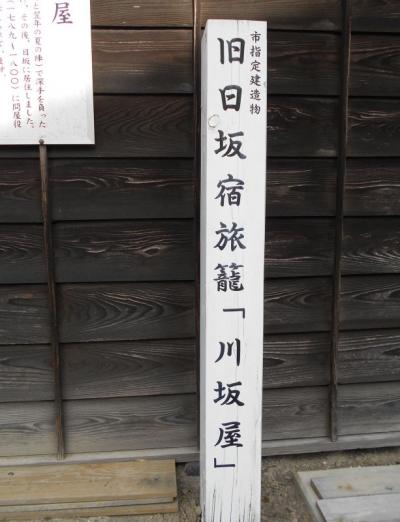 市指定建造物
旧日坂宿旅籠「川坂屋」
屋
と翌年の夏の陣)で深手を負った
、その後、日坂に居住しました。
(一七八九〜一八〇〇)に問屋役